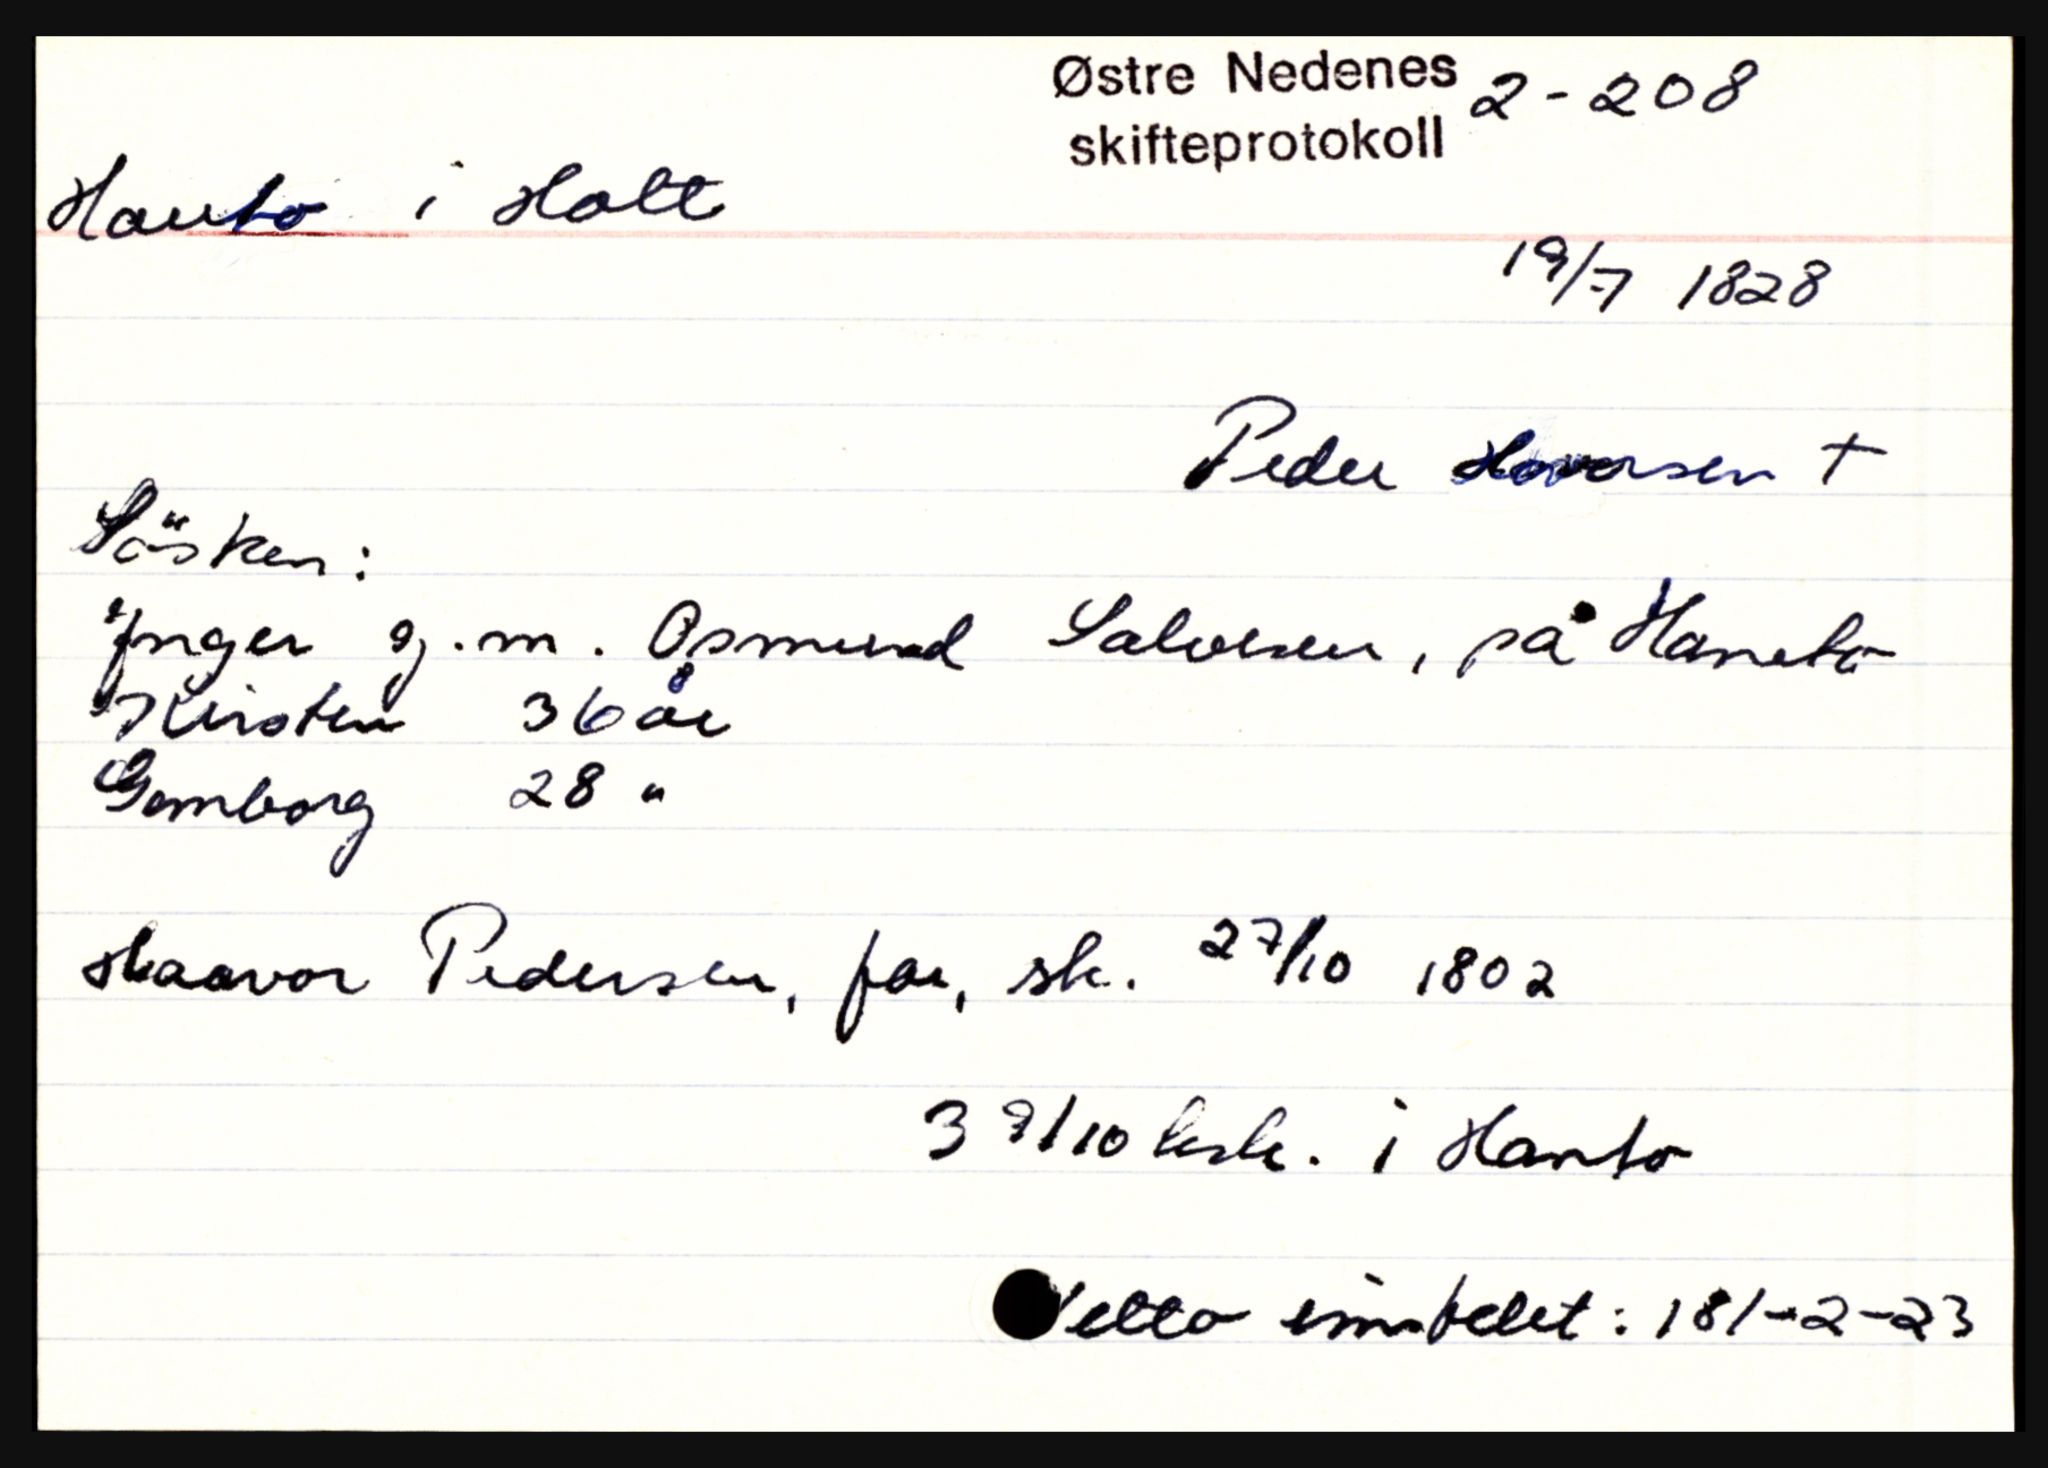 Østre Nedenes 2-208
skifteprotokoll
Hanto i Holt
19/7 1828
Peder Hovorsen +
Søsken:
Inger g.m. Osmund Salvesen, på Haneto
Kirsten 36 år
Gomborg 28 "
Haavor Pedersen, far, sk. 27/10 1802
3 9/10 lisk. i Hanto
Netto innbelet: 181-2-23